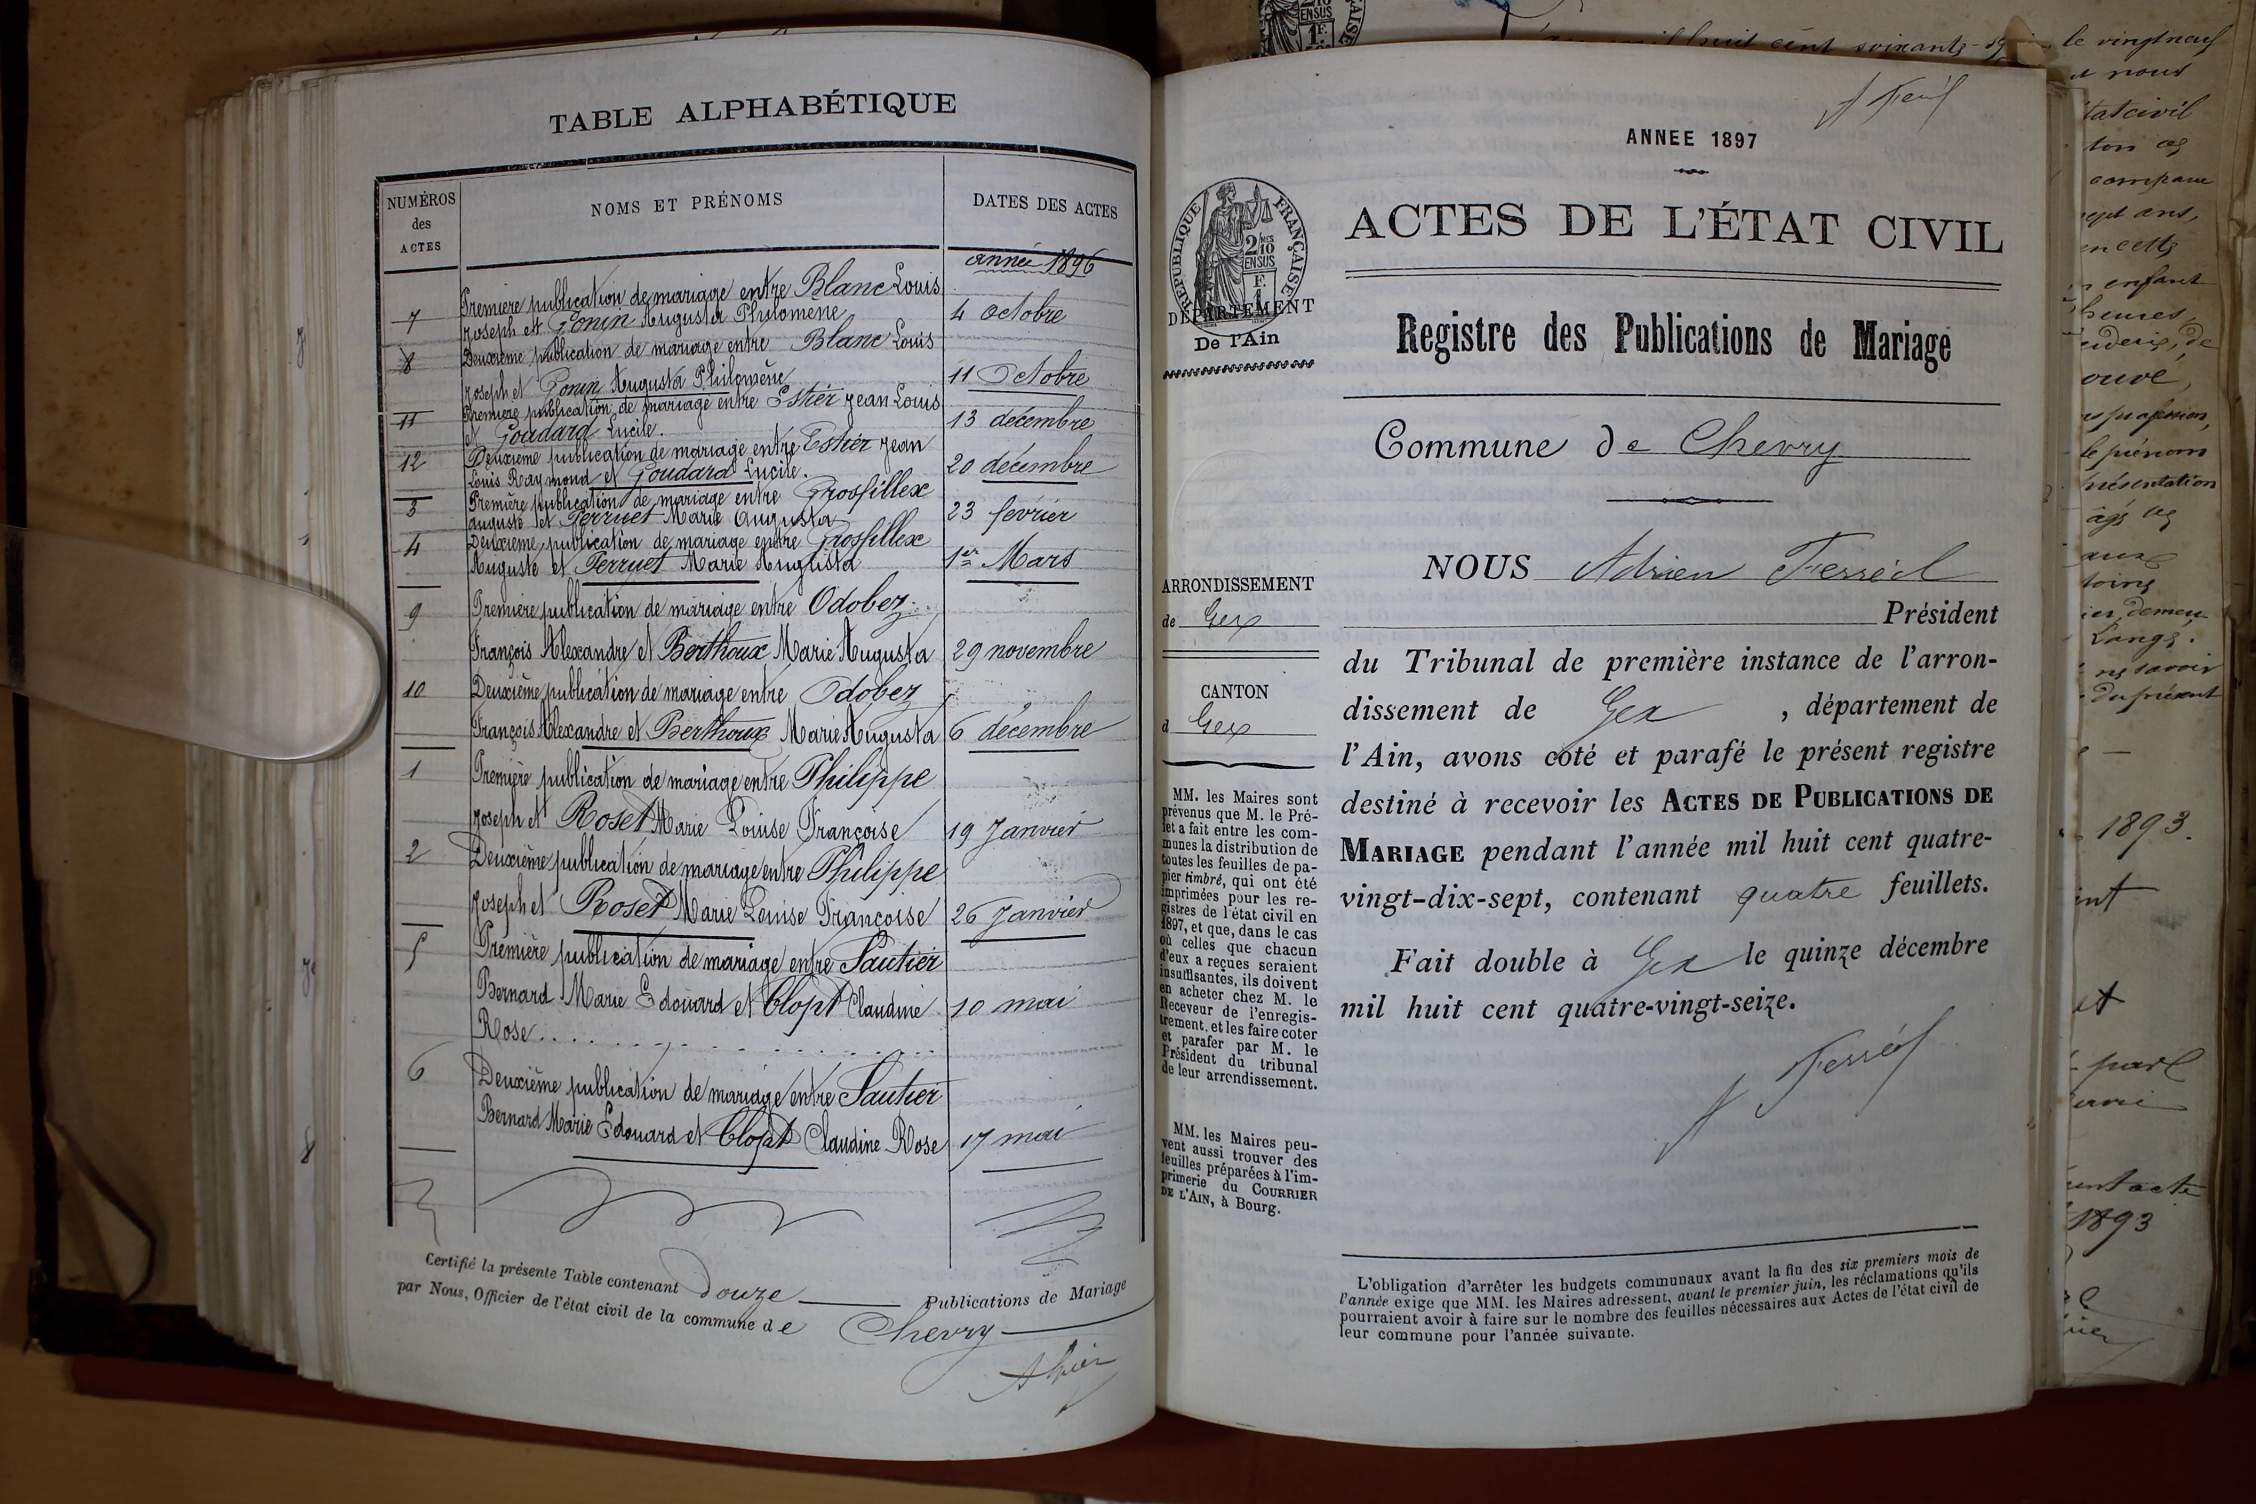 TABLE ALPHABÉTIQUE
NUMÉROS
des
ACTES
NOMS ET PRÉNOMS
DATES DES ACTES
année 1896
Première publication de mariage entre Blanc Louis
7 Joseph et Gonin Augusta Philomène 4 octobre
8 Deuxième publication de mariage entre Blanc Louis
Joseph et Gonin Augusta Philomène 11 Octobre
Première publication de mariage entre Estier Jean Louis
11 et Goudard Lucile. 13 décembre
12 Deuxième publication de mariage entre Estier Jean
Louis Raymond et Goudard Lucile. 20 décembre
3 Première publication de mariage entre Grosfillex
auguste et Perruet Marie Augusta 23 février
4 Deuxième publication de mariage entre Grosfillex
Auguste et Perruet Marie Augusta 1er Mars
9 Première publication de mariage entre Odobez
François Alexandre et Berthoux Marie Augusta 29 novembre
10 Deuxième publication de mariage entre Odobez
François Alexandre et Berthoux Marie Augusta 6 décembre
1 Première publication de mariage entre Philippe
Joseph et Roset Marie Louise Françoise 19 Janvier
2 Deuxième publication de mariage entre Philippe
Joseph et Roset Marie Louise Françoise 26 Janvier
5 Première publication de mariage entre Sautier
Bernard Marie Edouard et Clopt Claudine 10 mai
Rose
6 Deuxième publication de mariage entre Sautier
Bernard Marie Edouard et Clopt Claudine Rose 17 mai
Certifié la présente Table contenant douze Publications de Mariage
par Nous, Officier de l'état civil de la commune de Chevry
ANNEE 1897
RÉPUBLIQUE FRANÇAISE
2/10
EN SUS
1 F.
DÉPARTEMENT
De l'Ain
ACTES DE L'ÉTAT CIVIL
Registre des Publications de Mariage
Commune de Chevry
ARRONDISSEMENT
de Gex
CANTON
d Gex
MM. les Maires sont
prévenus que M. le Pré-
fet a fait entre les com-
munes la distribution de
toutes les feuilles de pa-
pier timbré, qui ont été
imprimées pour les re-
gistres de l'état civil en
1897, et que, dans le cas
où celles que chacun
d'eux a reçues seraient
insuffisantes, ils doivent
en acheter chez M. le
Receveur de l'enregis-
trement, et les faire coter
et parafer par M. le
Président du tribunal
de leur arrondissement.
MM. les Maires peu-
vent aussi trouver des
feuilles préparées à l'im-
primerie du COURRIER
DE L'AIN, à Bourg.
NOUS Adrien Ferréol
Président
du Tribunal de première instance de l'arron-
dissement de Gex, département de
l'Ain, avons coté et parafé le présent registre
destiné à recevoir les ACTES DE PUBLICATIONS DE
MARIAGE pendant l'année mil huit cent quatre-
vingt-dix-sept, contenant quatre feuillets.
Fait double à Gex le quinze décembre
mil huit cent quatre-vingt-seize.
L'obligation d'arrêter les budgets communaux avant la fin des six premiers mois de
l'année exige que MM. les Maires adressent, avant le premier juin, les réclamations qu'ils
pourraient avoir à faire sur le nombre des feuilles nécessaires aux Actes de l'état civil de
leur commune pour l'année suivante.
le vingtneuf
nous
compare
enfant
heures,
le prénom
1893.
1893